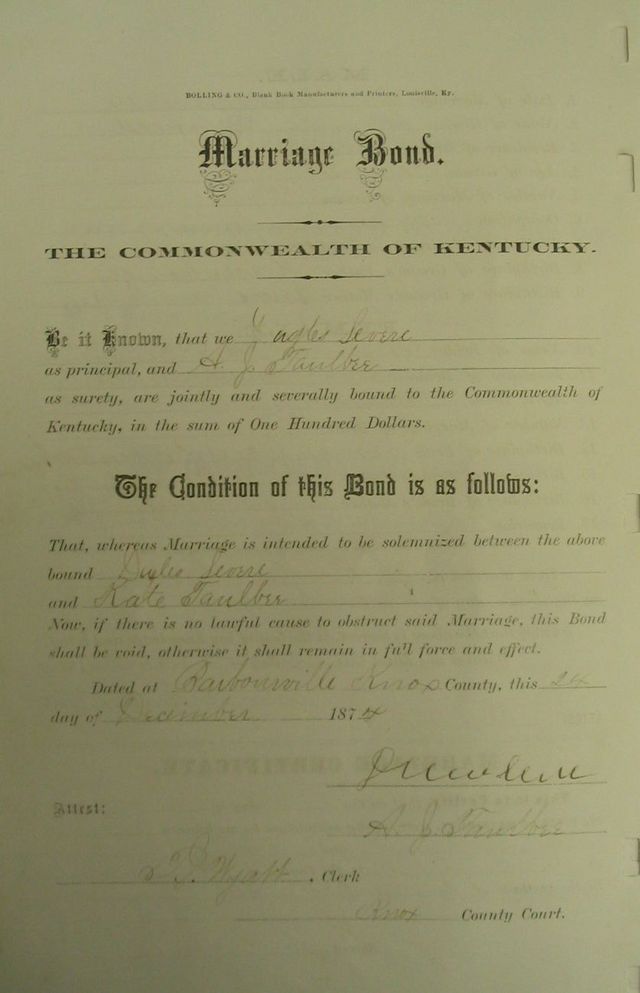 BOLLING & CO., Blank Book Manufacturers and Printers, Louisville, Ky.
Marriage Bond.
THE COMMONWEALTH OF KENTUCKY.
Be it Known, that we Severe
as principal, and A. J. Faulber
as surety, are jointly and severally bound to the Commonwealth of
Kentucky, in the sum of One Hundred Dollars.
The Condition of this Bond is as follows:
That, whereas Marriage is intended to be solemnized between the above
bound Severe
and Kate Faulber
Now, if there is no lawful cause to obstruct said Marriage, this Bond
shall be void, otherwise it shall remain in full force and effect.
Dated at Barbourville Knox County, this 24
day of December 1874
Attest:
A. J. Faulber
Wyatt, Clerk
Knox County Court.